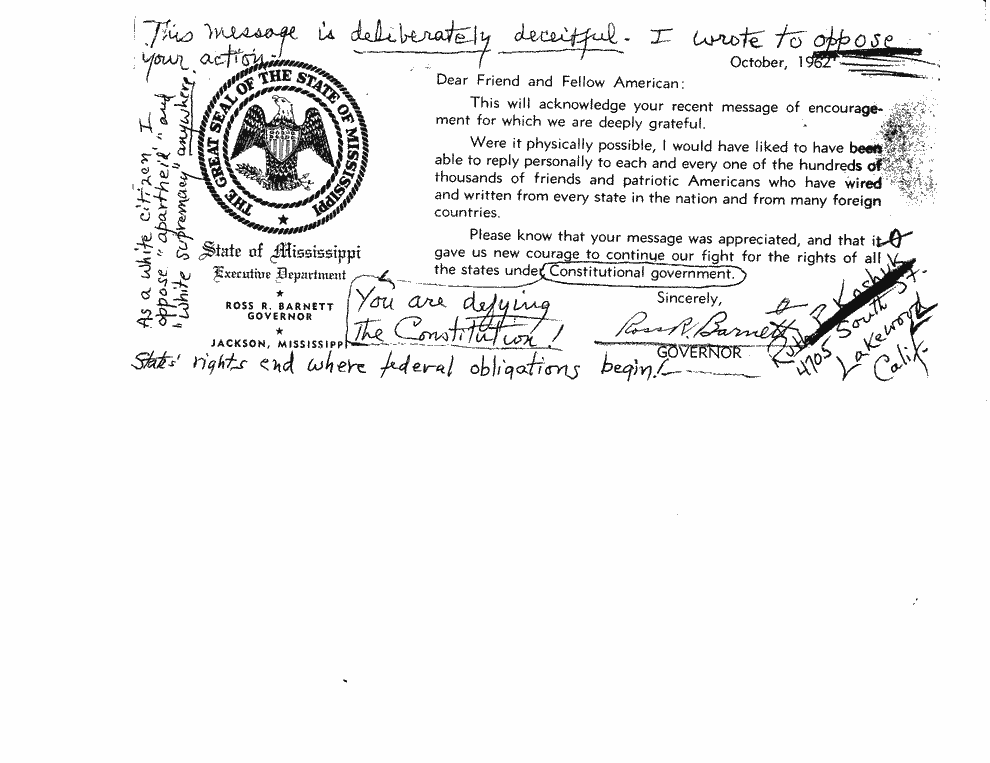 This message is deliberately deceitful. I wrote to oppose
your action.
As a white citizen I
oppose "apartheid" and
"white supremacy" anywhere.
THE GREAT SEAL OF THE STATE OF MISSISSIPPI
State of Mississippi
Executive Department
ROSS R. BARNETT
GOVERNOR
JACKSON, MISSISSIPPI
October, 1962
Dear Friend and Fellow American:
This will acknowledge your recent message of encourage-
ment for which we are deeply grateful.
Were it physically possible, I would have liked to have been
able to reply personally to each and every one of the hundreds of
thousands of friends and patriotic Americans who have wired
and written from every state in the nation and from many foreign
countries.
Please know that your message was appreciated, and that it
gave us new courage to continue our fight for the rights of all
the states under Constitutional government.
Sincerely,
Ross R. Barnett
GOVERNOR
You are defying
The Constitution!
States' rights end where federal obligations begin!
4705 South St.
Lakewood
Calif.